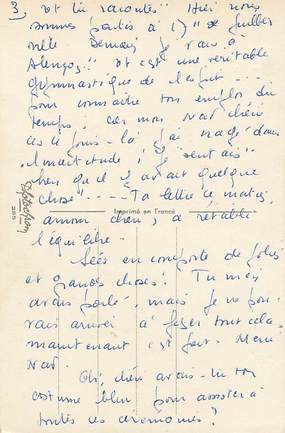 3) et tu racontes "Hier nous
sommes partis à 17h de
ville Demain je vais à
Alençon". Et c'est une véritable
gymnastique de l'esprit ---
pour connaître ton emploi du
temps, car mon Nad chéri
ces 2 jours-là j'ai nagé dans
l'inactitude ; je "sentais"
bien qu'il y avait quelque
chose" ---- Ta lettre ce matin,
amour chéri, a rétabli
Imprimé en France
l'équilibre.
Sées en comporte de jolies
et grandes choses ! Tu m'en
avais parlé, mais je ne pou-
vais arriver à fixer tout cela.
maintenant c'est fait. Merci
Nad.
Oh, chéri avais-tu ton
costume bleu pour assister à
toutes ces cérémonies ?